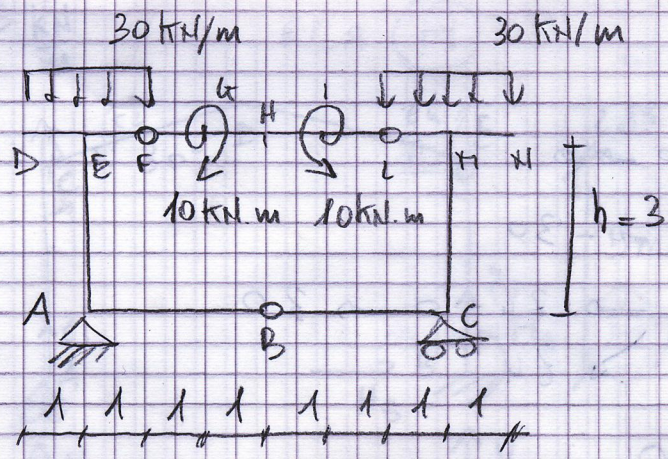 30 KN/m 30 KN/m
G H I
D E F L M N
10 KN.m 10 KN.m
h = 3
A B C
1 1 1 1 1 1 1 1